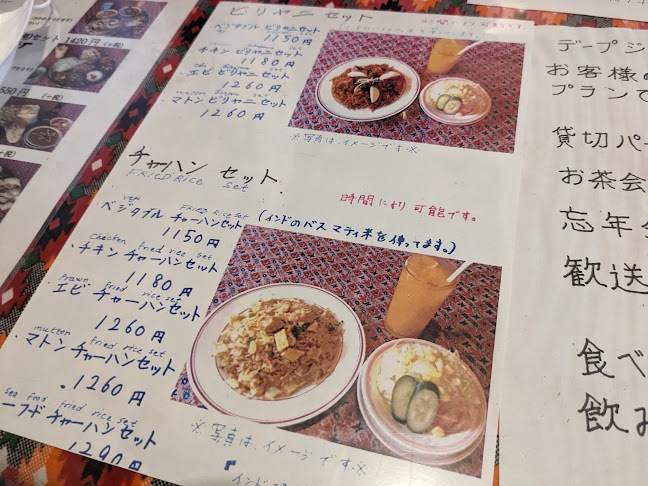 ビリヤニ セット
ベジタブル ビリヤニセット
1150円
チキン ビリヤニ セット
1180円
エビ ビリヤニ セット
1260円
マトン ビリヤニ セット
1260円
※写真は、イメージです.※
チャーハン セット
FRICD Rice set
時間により可能です。
(インドのバスマティ米を使ってます。)
veg FRICD Rice set
・ベジタブル チャーハンセット
1150円
Chicken fried rice set
・チキン チャーハンセット
1180円
Prawn fried rice set
・エビ チャーハンセット
1260円
mutton fried rice set
・マトン チャーハンセット
.1260円
sea food fried rice set
ーフード チャーハンセット
1290円
※写真は、イメージです.※
インド
セット 1420円
550円 (+税)
デープジ
お客様の
プランで
貸切パー
お茶会
忘年会
歓送
食べ
飲み